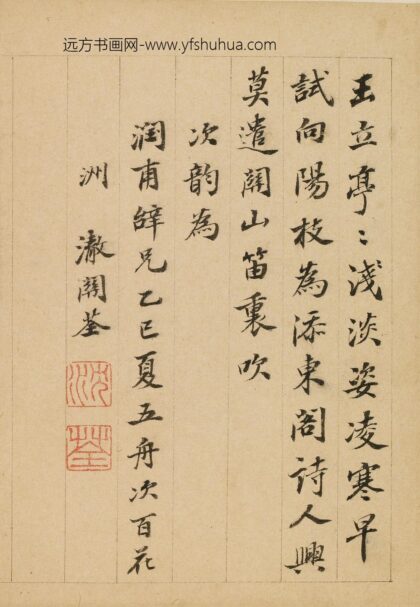 远方书画网-www.yfshuhua.com
玉立亭〻淺淡姿凌寒早
試向陽枝為添東閣詩人興
莫遣關山笛裏吹
次韵為
潤甫辥兄乙巳夏五舟次百花
洲 澈關荃
沈
荃